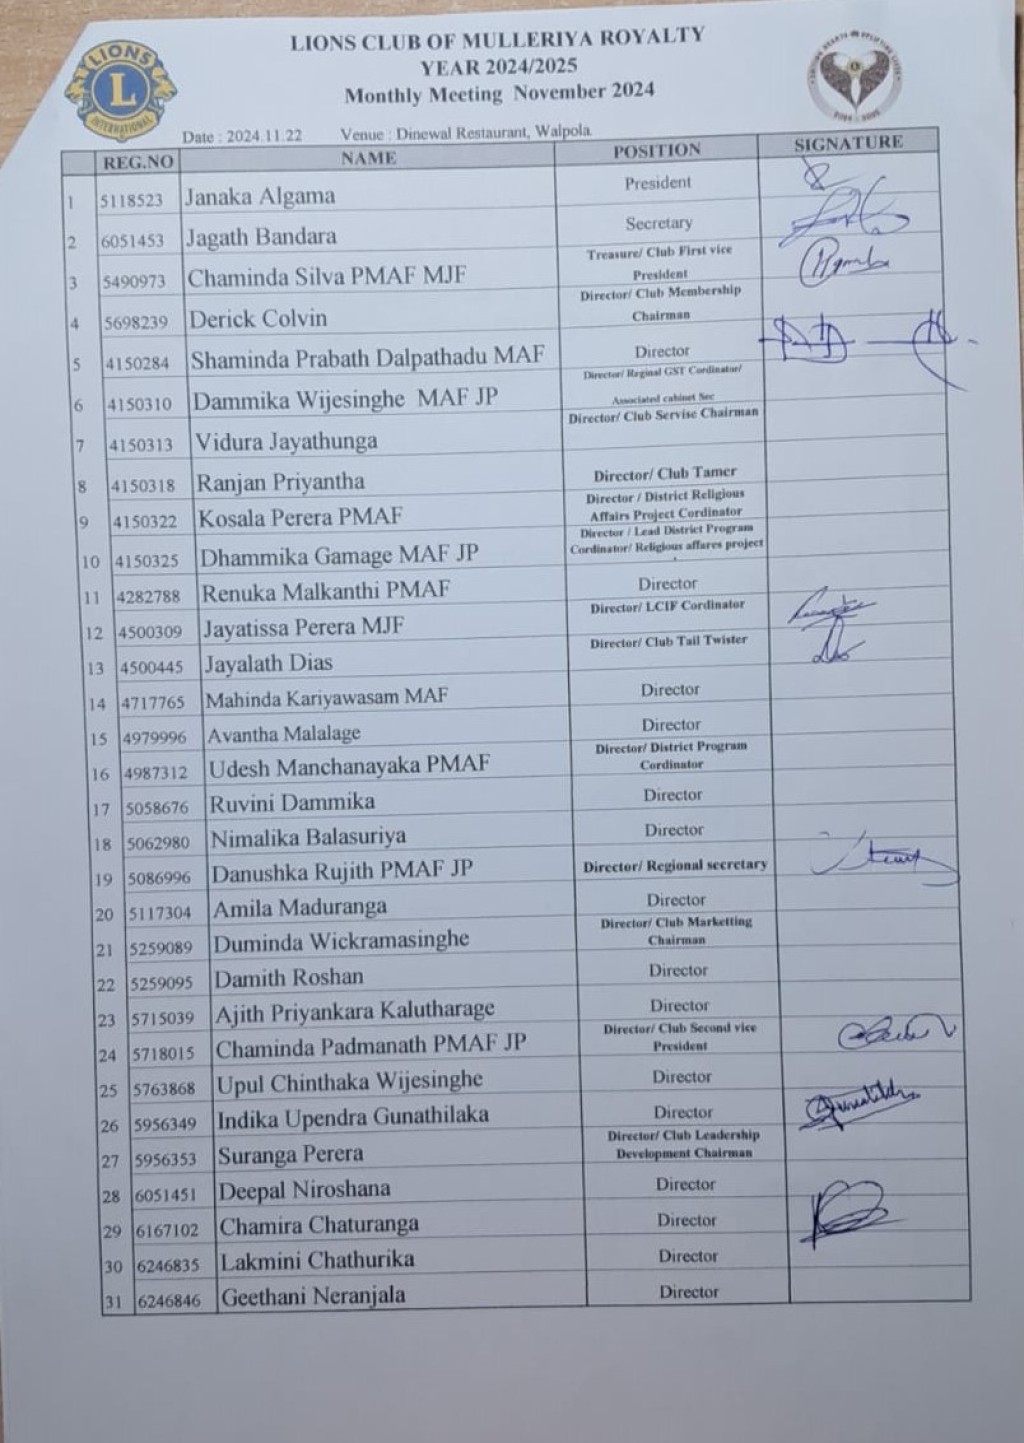 LIONS CLUB OF MULLERIYA ROYALTY
YEAR 2024/2025
Monthly Meeting November 2024
LIONS
L
INTERNATIONAL
Date : 2024.11.22 Venue : Dinewal Restaurant, Walpola.
REG.NO NAME POSITION SIGNATURE
1 5118523 Janaka Algama President
2 6051453 Jagath Bandara Secretary
3 5490973 Chaminda Silva PMAF MJF Treasure/ Club First vice President
4 5698239 Derick Colvin Director/ Club Membership Chairman
5 4150284 Shaminda Prabath Dalpathadu MAF Director
6 4150310 Dammika Wijesinghe MAF JP Director/ Reginal GST Cordinator/ Associated cabinet Sec
7 4150313 Vidura Jayathunga Director/ Club Servise Chairman
8 4150318 Ranjan Priyantha Director/ Club Tamer
9 4150322 Kosala Perera PMAF Director / District Religious Affairs Project Cordinator
10 4150325 Dhammika Gamage MAF JP Director / Lead District Program Cordinator/ Religious affares project
11 4282788 Renuka Malkanthi PMAF Director
12 4500309 Jayatissa Perera MJF Director/ LCIF Cordinator
13 4500445 Jayalath Dias Director/ Club Tail Twister
14 4717765 Mahinda Kariyawasam MAF Director
15 4979996 Avantha Malalage Director
16 4987312 Udesh Manchanayaka PMAF Director/ District Program Cordinator
17 5058676 Ruvini Dammika Director
18 5062980 Nimalika Balasuriya Director
19 5086996 Danushka Rujith PMAF JP Director/ Regional secretary
20 5117304 Amila Maduranga Director
21 5259089 Duminda Wickramasinghe Director/ Club Marketting Chairman
22 5259095 Damith Roshan Director
23 5715039 Ajith Priyankara Kalutharage Director
24 5718015 Chaminda Padmanath PMAF JP Director/ Club Second vice President
25 5763868 Upul Chinthaka Wijesinghe Director
26 5956349 Indika Upendra Gunathilaka Director
27 5956353 Suranga Perera Director/ Club Leadership Development Chairman
28 6051451 Deepal Niroshana Director
29 6167102 Chamira Chaturanga Director
30 6246835 Lakmini Chathurika Director
31 6246846 Geethani Neranjala Director